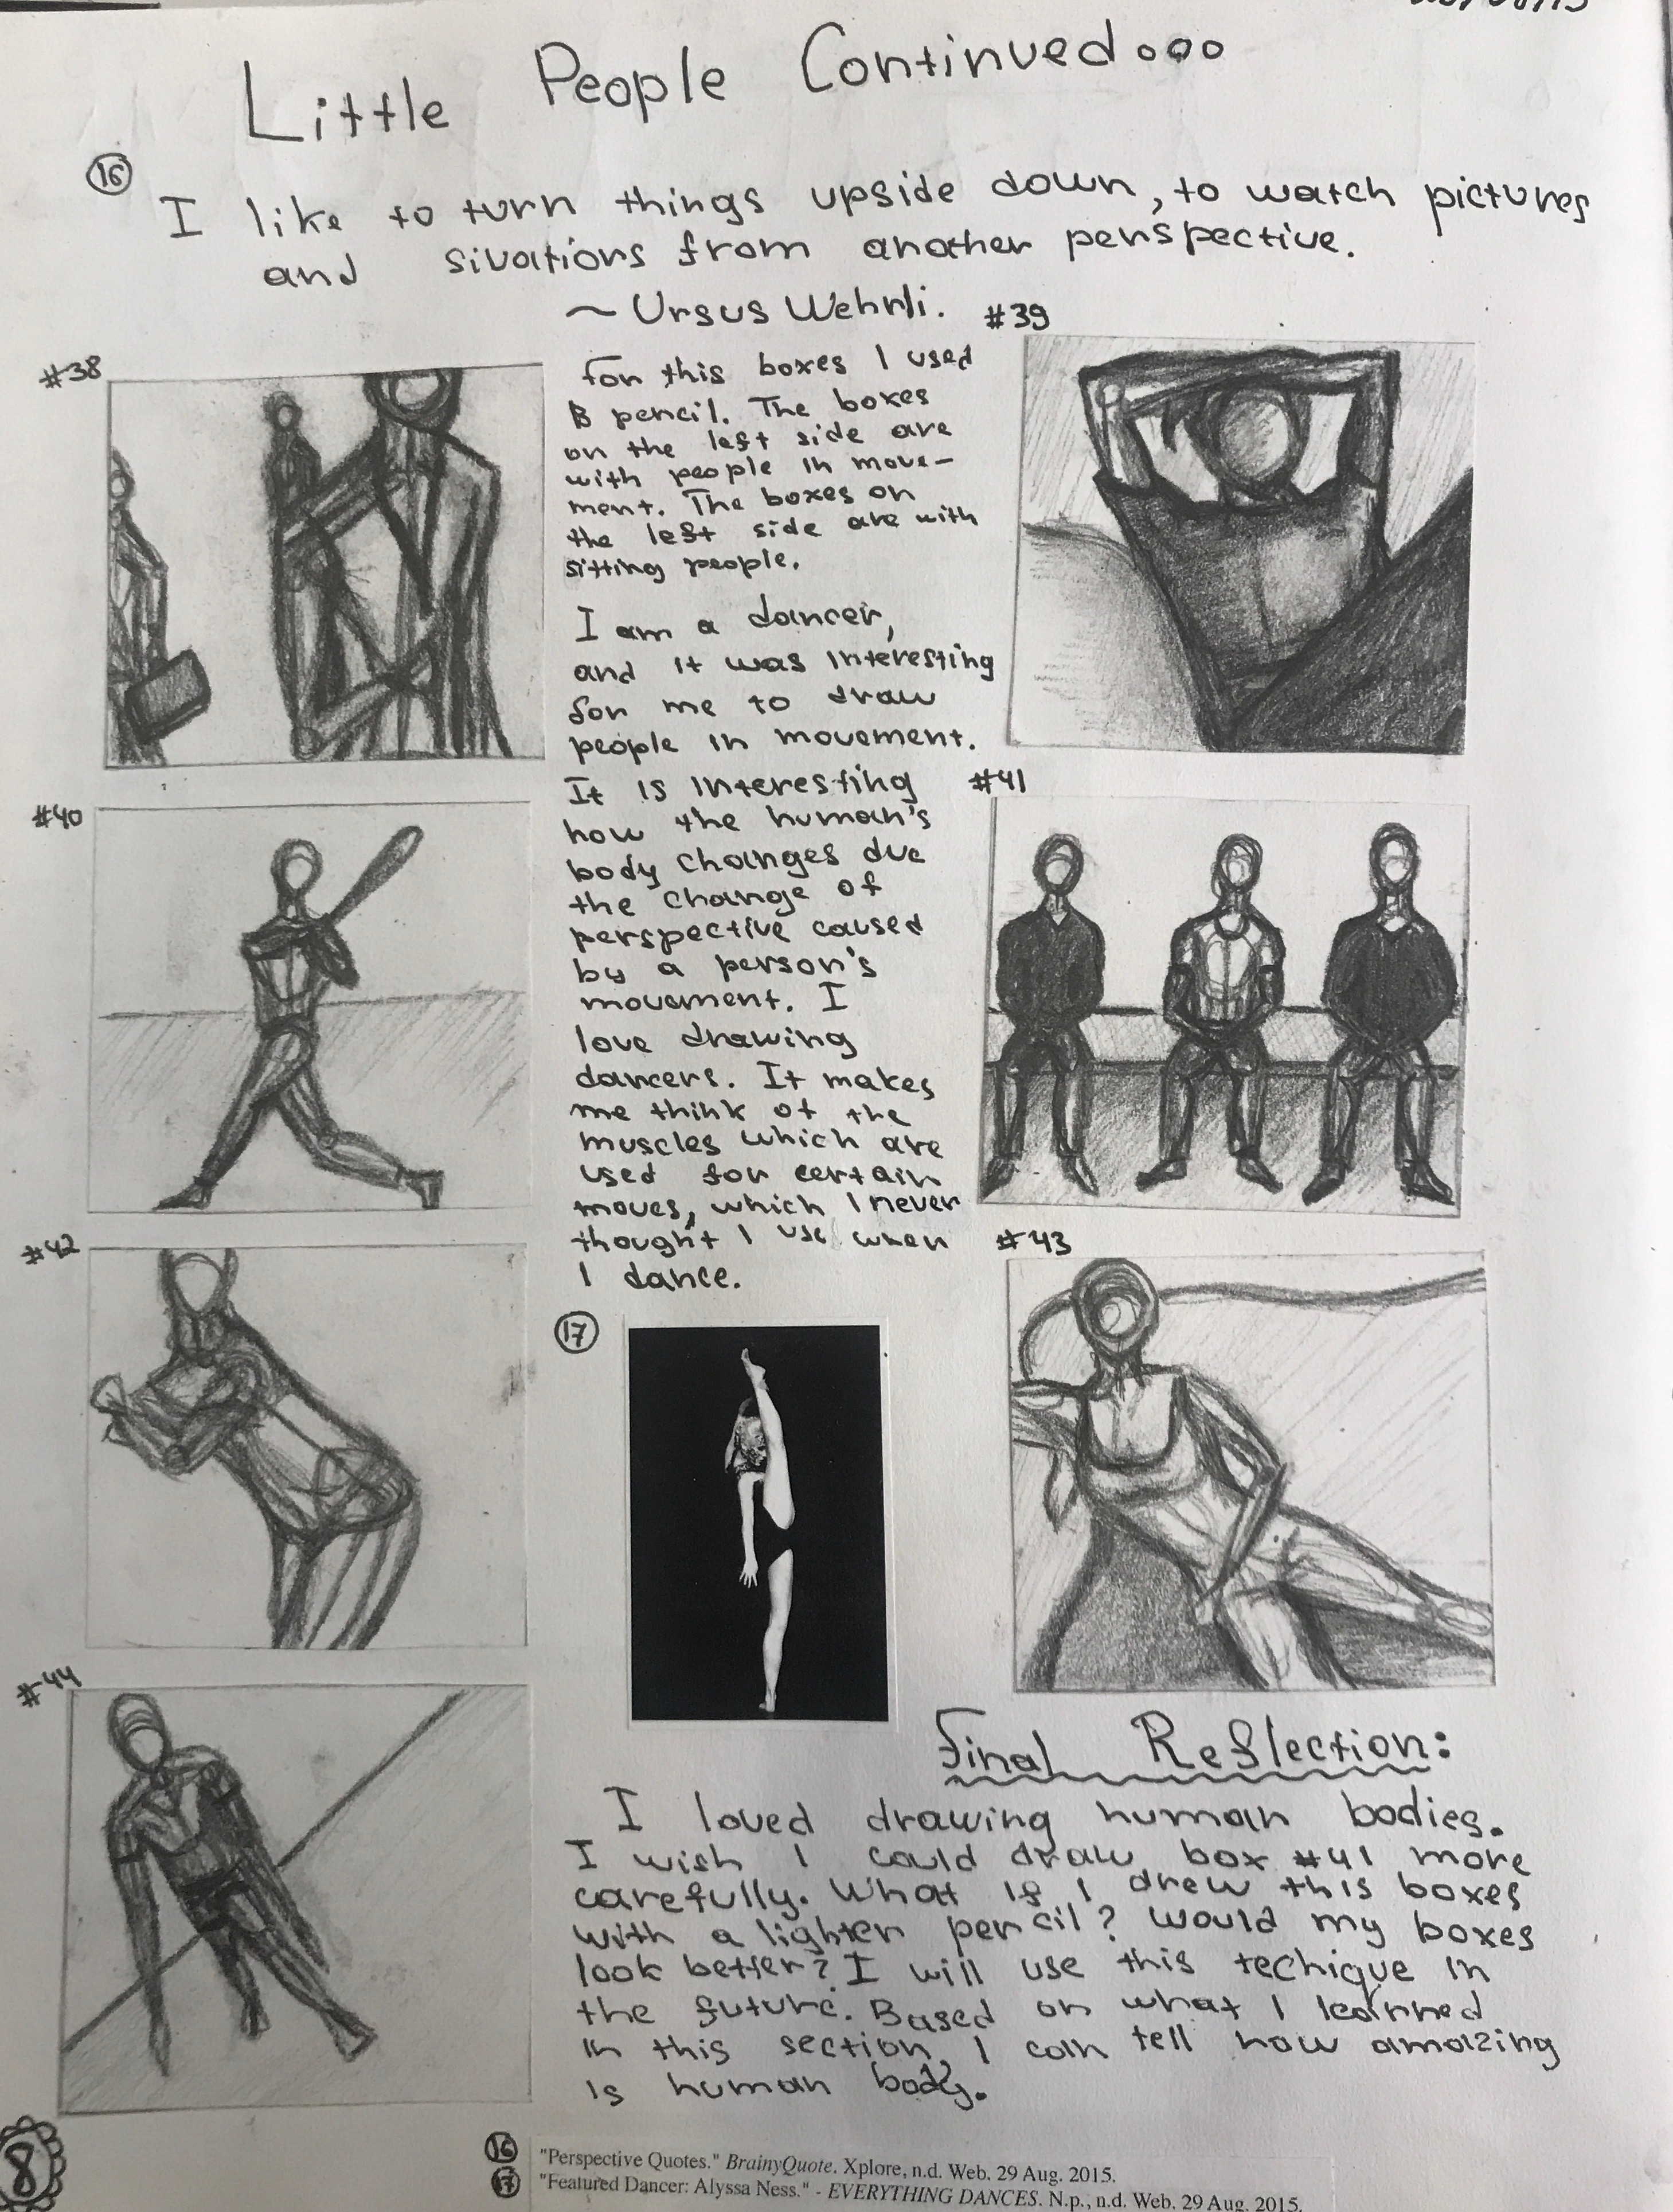 Little People Continued...
16
I like to turn things upside down, to watch pictures
and sivations from another perspective.
~ Ursus Wehrli.
#38
#39
For this boxes I used
B pencil. The boxes
on the left side are
with people in move-
ment. The boxes on
the left side are with
sitting people.
I am a dancer,
and it was interesting
for me to draw
people in movement.
It is interesting
how the human's
body changes due
the change of
perspective caused
by a person's
movement. I
love drawing
dancers. It makes
me think of the
muscles which are
used for certain
moves, which I never
thought I use when
I dance.
#40
#41
#42
#43
17
#44
Final Reflection:
I loved drawing human bodies.
I wish I could draw box #41 more
carefully. What if I drew this boxes
with a lighter pencil? Would my boxes
look better? I will use this techique in
the future. Based on what I learned
in this section, I can tell how amazing
is human body.
8
16 "Perspective Quotes." BrainyQuote. Xplore, n.d. Web. 29 Aug. 2015.
17 "Featured Dancer: Alyssa Ness." - EVERYTHING DANCES. N.p., n.d. Web. 29 Aug. 2015.